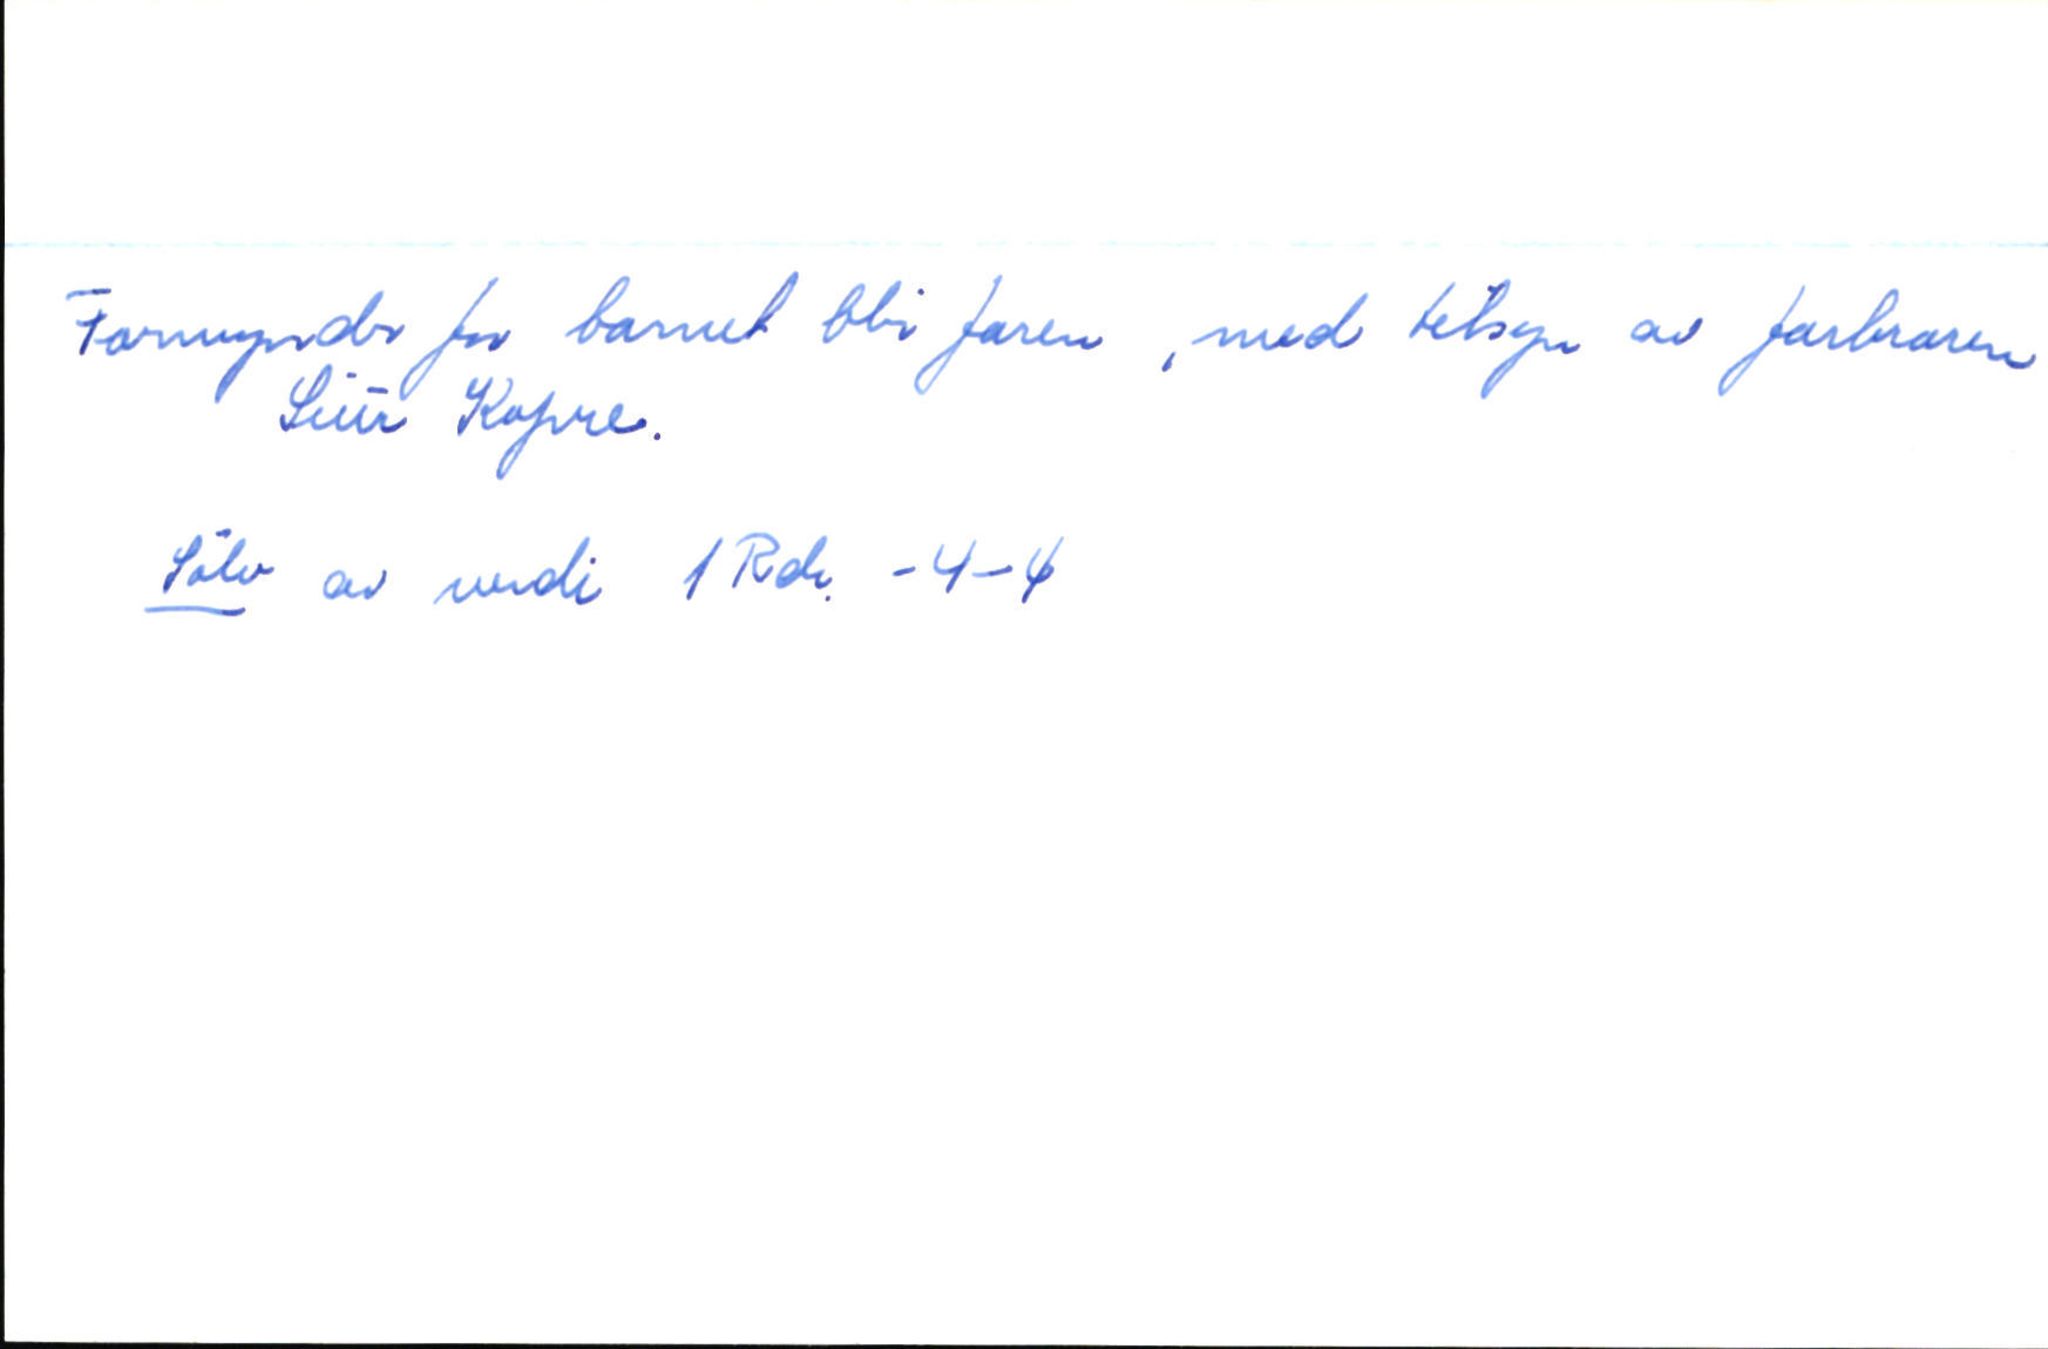 Formynder for barnet bli faren, med tilsyn av farbroren
Siur Kopre.
Sölv av verdi 1 Rdr. -4-4